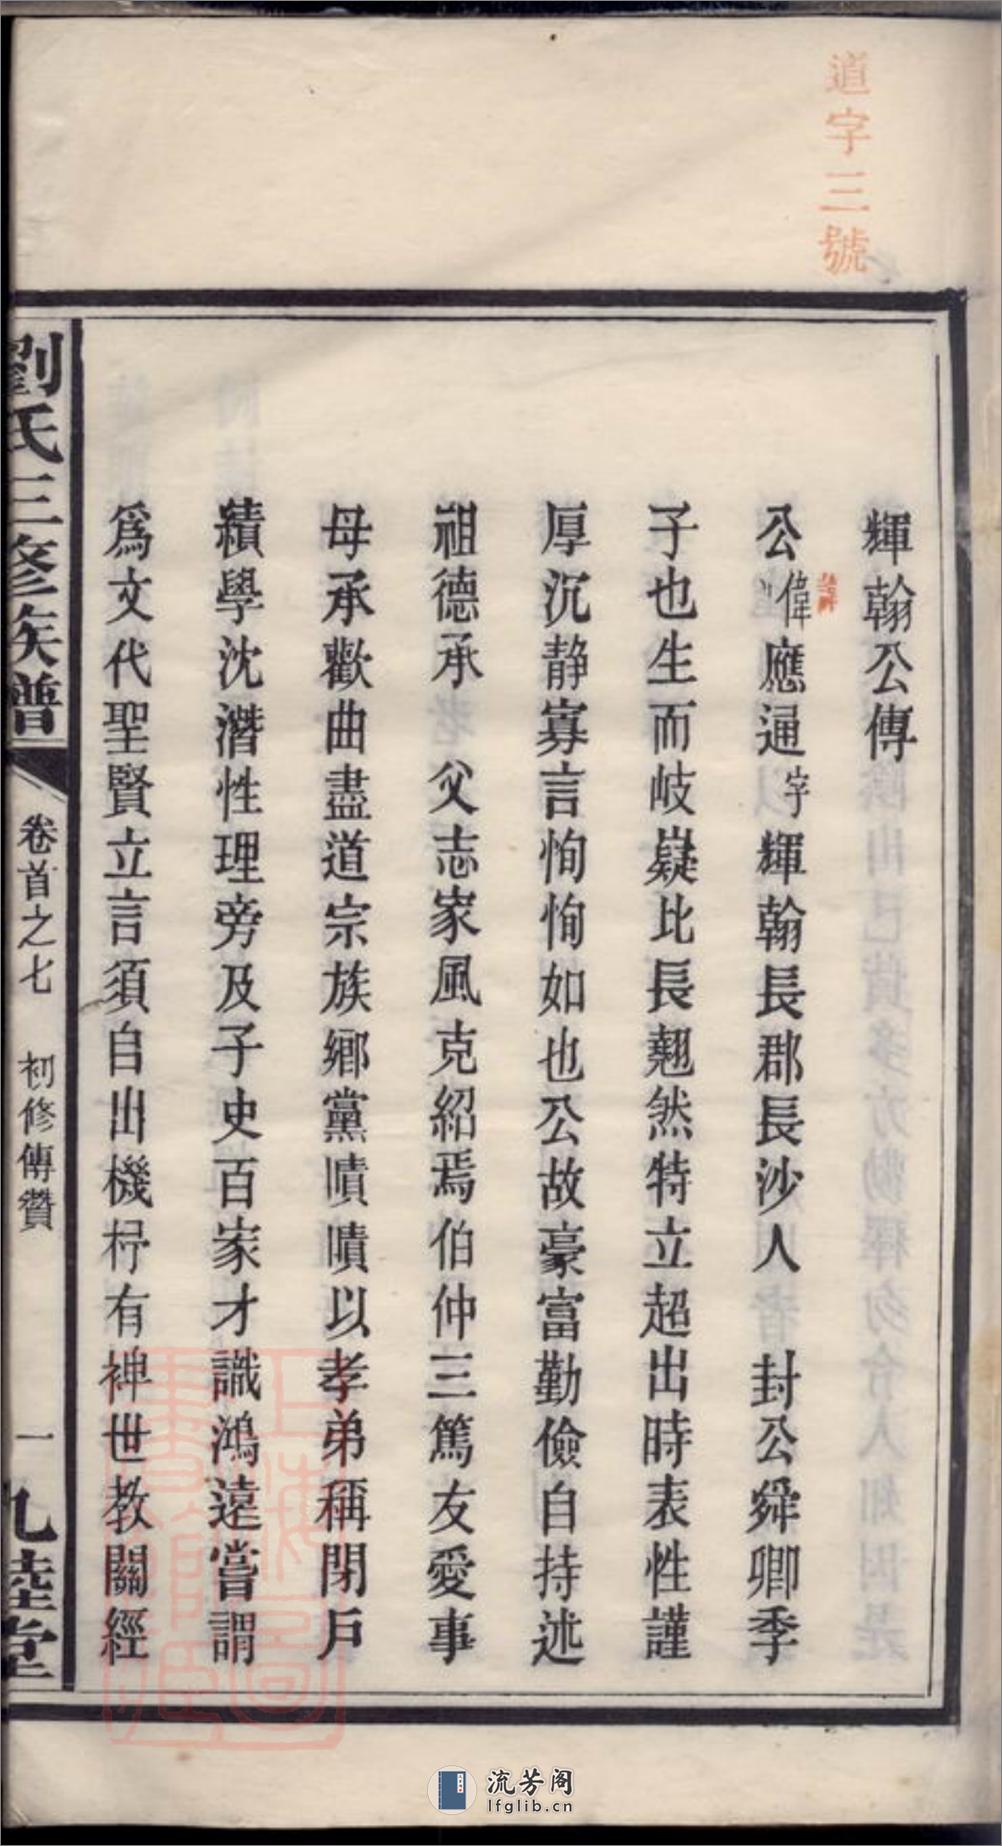 道字三號
輝翰公傳
公諱偉應通字輝翰長郡長沙人 封公舜卿季
子也生而岐嶷比長翹然特立超出時表性謹
厚沉靜寡言恂恂如也公故豪富勤儉自持述
祖德承 父志家風克紹焉伯仲三篤友愛事
母承歡曲盡道宗族鄉黨嘖嘖以孝弟稱閉戶
績學沈潛性理旁及子史百家才識鴻遠嘗謂
爲文代聖賢立言須自出機杼有裨世教關經
劉氏三修族譜 卷首之七 初修傳贊 一 九陸堂
流芳阁
lfglib.cn